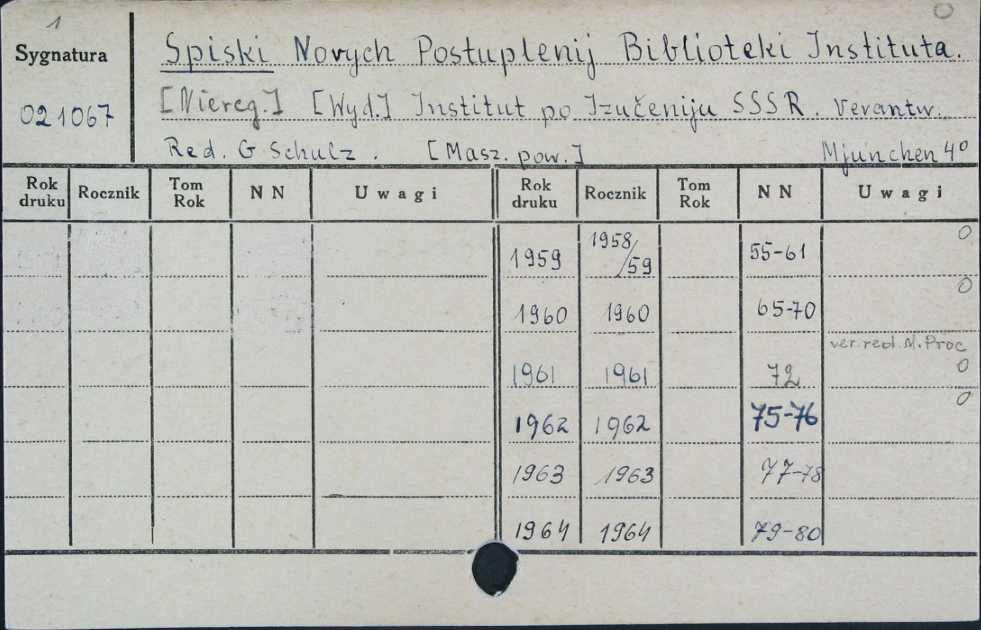 1
Sygnatura
021067
Spiski Novych Postuplenij Biblioteki Instituta.
[Niereg.] [Wyd.] Institut po Izučeniju SSSR. Verantw.
Red. G Schulz. [Masz. pow.] Mjunchen 4°
Rok druku Rocznik Tom Rok N N Uwagi Rok druku Rocznik Tom Rok N N Uwagi
1959 1958/59 55-61 0
1960 1960 65-70 0
ver. red. M. Proc
1961 1961 72 0
1962 1962 75-76 0
1963 1963 77-78
1964 1964 79-80